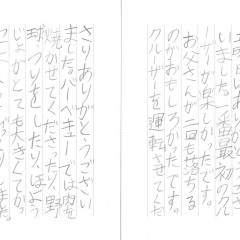 いました。一番最初のクル
ーザーが楽しかったです。
お父さんが二回も落ちる
のがおもしろかったです。
クルーザーを運転させてくだ
さりありがとうござい
ました。バーベキューでは肉を
焼かせてくださったり、野
球、つりをしたり、ほよう
じょがとても大きくてがっ
びっくりしました。